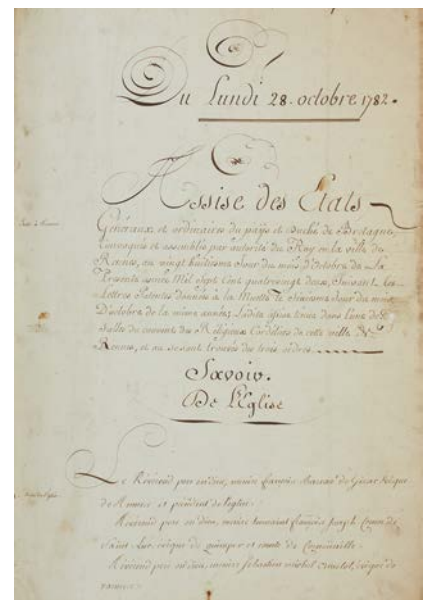 Du Lundi 28. octobre 1782.
Assise des Etats
Généraux et ordinaires du pays et Duché de Bretagne,
convoqués et assemblés par autorité du Roy en la ville de
Rennes, au vingt huitieme Jour du mois d'Octobre de La
Presente année Mil Sept Cent quatrevingt deux, Suivant les
Lettres Patentes données à la Muette le Jour du mois
D'octobre de la même année; Ladite assise tenue dans l'une des
Salles du couvent des Religieux Cordeliers de cette ville de
Rennes, et au dessous trouvés des trois ordres
Savoir.
De L'Eglise
Le Révérend pere en dieu, messire françois Bareau de Girac Evêque
de Rennes et président de l'eglise.
Révérend pere en dieu, messire toussaint françois joseph Conen de
Saint Luc, évêque de quimper et comte de Cornouaille.
Révérend pere en dieu, messire Sébastien michel Amelot, évêque de
vannes